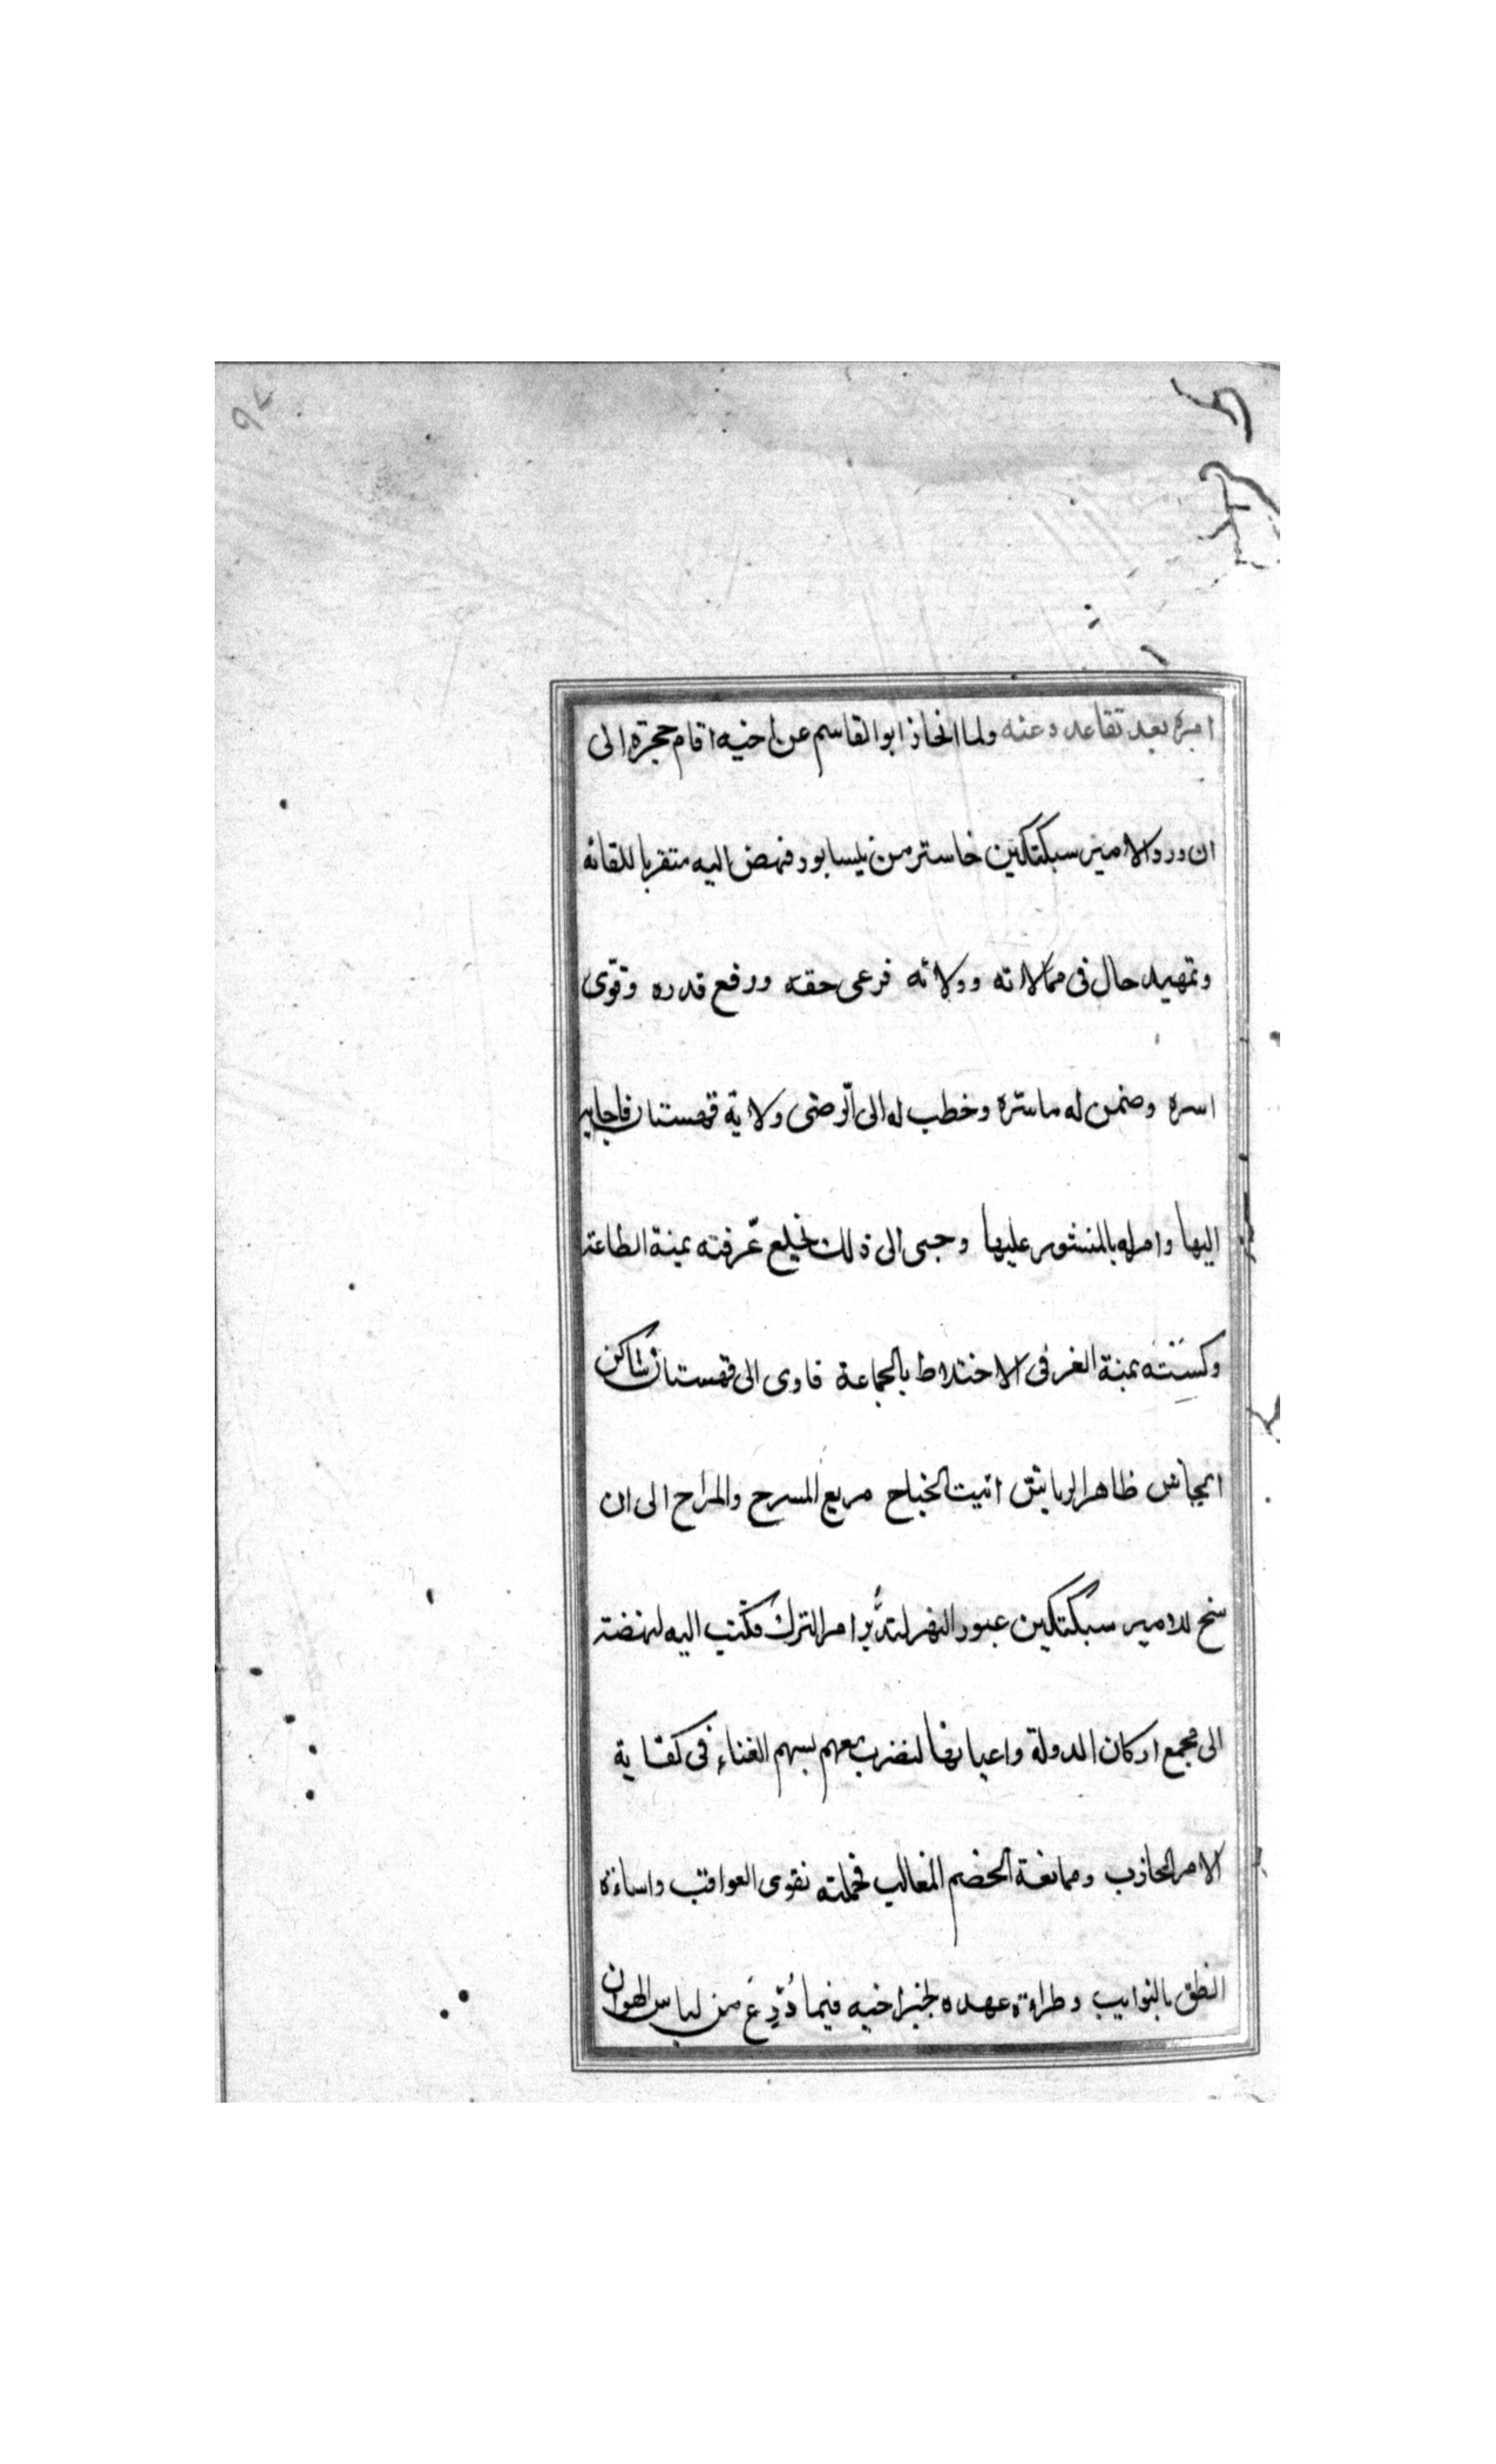 امره بعد تقاعده عنه ولما انحاز ابوالقاسم عن اخيه اقام حجرة الى
ان ورد الامير سبكتكين خاستر من نيسابور فنهض اليه متقربا للقائه
وتمهيد حال فى ممالاته وولائه فرعى حقه ورفع قدره وقوّى
اسره وضمن له ماسرّه وخطب له الى الرضى ولاية قهستان فاجابه
اليها وامر له بالمنشور عليها وحبى الى ذلك بخلع عرّفته يمنة الطاعة
وكسته يمنة الغر فى الاختلاط بالجماعة فاوى الى قهستان شاكن
الجاش ظاهر الرياش اثيت الجناح مريع المسرح والمراح الى ان
سنح للامير سبكتكين عبور النهر لتدبّر امر الترك فكتب اليه لنهضة
الى مجمع اركان الدولة واعيانها ليضرب معهم بسهم الغناء فى كفاية
الامر الحازب وممانعة الخصم المغالب فحملته نقوى العواقب واساءة
النطق بالنوايب وطراءة عهده بخبر اخيه فيما دُرِّعَ من لباس الهوان